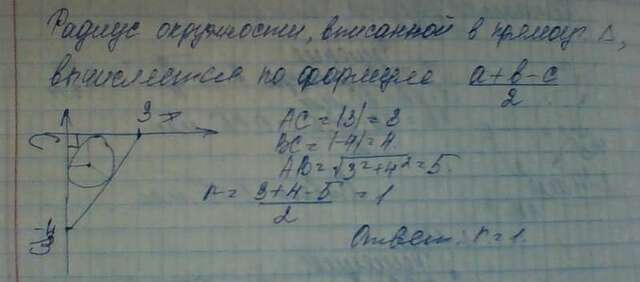 Радиус окружности, вписанной в прямоуг. Δ,
вычисляется по формуле a+b-c
2
3
AC = |3| = 3
BC = |-4| = 4
AB = √3²+4² = 5
r = 3+4-5 = 1
2
Ответ: r = 1.